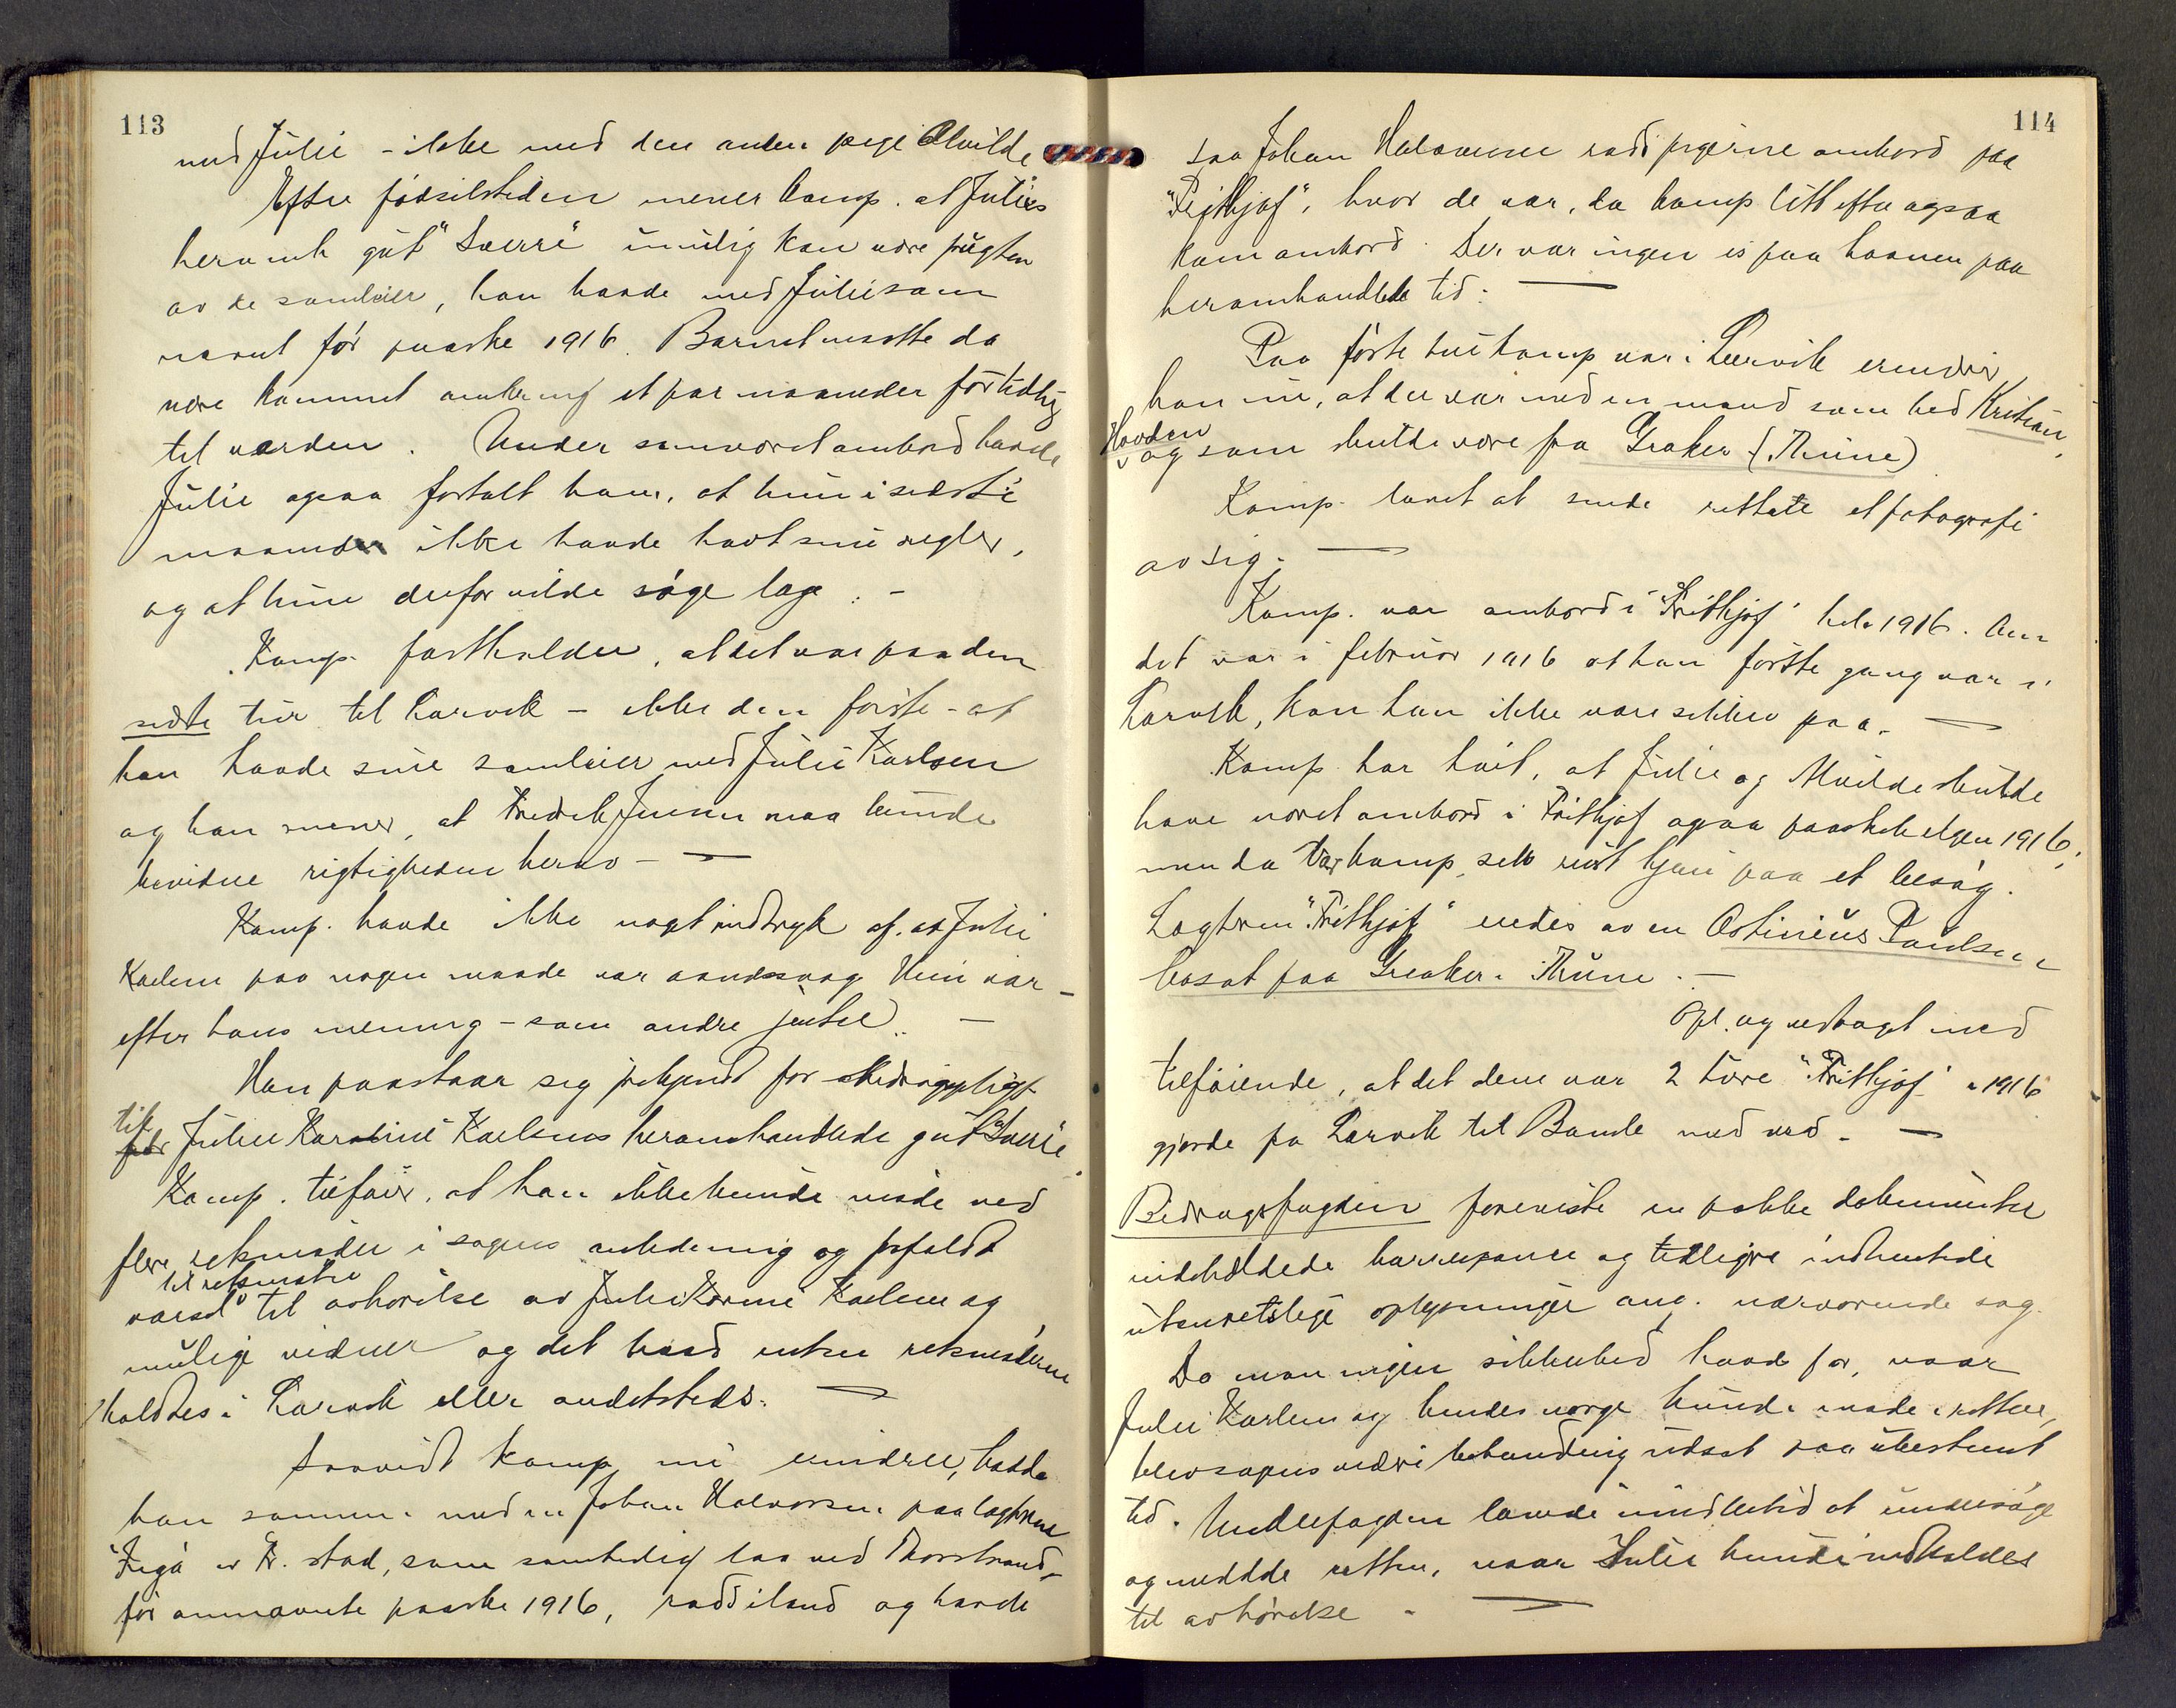 113
med Julie - ikke med den anden pige Alvilde
Efter fødselstiden mener komp. at Julies
heromh. gut "Sverre" umulig kan være frugten
av de samleier, han havde med Julie som
nævnt før paaske 1916. Barnet maatte da
være kommet omkring et par maaneder for tidlig
til verden. Under samværet ombord havde
Julie ogsaa fortalt ham, at hun i sidste
maaneder ikke havde havt sine regler,
og at hun derfor vilde søge læge. -
Komp. fastholder, at det var paa den
sidste tur til Larvik - ikke den første - at
han havde sine samleier med Julie Karlsen
og han mener, at Fredrik Jensen maa kunde
bevidne rigtigheden herav -
Komp. havde ikke nogt indtryk af at Julie
Karlsen paa nogen maade var aandssvag. Hun var -
efter hans mening - som andre jenter. -
Han paastaar sig frikjendt for bidragspligt
til
for Julie Karoline Karlsens heromhandlede gut "Sverre".
Komp. tilføier, at han ikke kunde møde ved
flere retsmøder i sagens anledning og frafaldt
til retsmøter
varsel til avhørelse av Julie Karine Karlsen og
mulige vidner og det hvad enten retsmøderne
holdtes i Larvik eller andetsteds. -
Saavidt komp. nu erindrer, hadde
han sammen med en Johan Halvorsen paa lægteren
"Freya" av Fr.stad, som samtidig laa ved Thorstrand,
før omnævnte paaske 1916, rodd iland og havde
114
saa Johan Halvorsen rodd pigerne ombord paa
"Frithjof", hvor de var, da komp. litt efter ogsaa
kom ombord. Der var ingen is paa havnen paa
heromhandlede tid. -
Paa første tur komp. var i Larvik erindrer
han nu, at der var med en mand som hed Kristian
Hovden
og som skulde være fra Greaker (Thune)
Komp. lovet at sende rette et fotografi
av sig. -
Komp. var ombord i "Frithjof" hele 1916. Om
det var i februar 1916 at han første gang var i
Larvik, kan han ikke være sikker paa. -
Komp. har hørt, at Julie og Alvilde skulde
have været ombord i Frithjof ogsaa paaskehelgen 1916,
men da var komp. selv reist hjem paa et besøg.
Lægteren "Frithjof" eiedes av en Ostinius Paulsen
bosat paa Greaker i Thune. -
Opl. og vedtaget med
tilføiende, at det dene var 2 ture "Frithjof" i 1916
gjorde fra Larvik til Bamle med ved. -
Bidragsfogden foreviste en pakke dokumenter
indeholdede korrespance og tidligere indhentede
utenretslige oplysninger ang. nærværende sag.
Da man ingen sikkerhed havde for, naar
Julie Karlsen og hendes verge kunde møde i retten,
blev sagens videre behandling udsat paa ubestemt
tid. Underfogden lovede imidlertid at undersøge
og meddele retten, naar Julie kunde indkaldes
til avhørelse. -